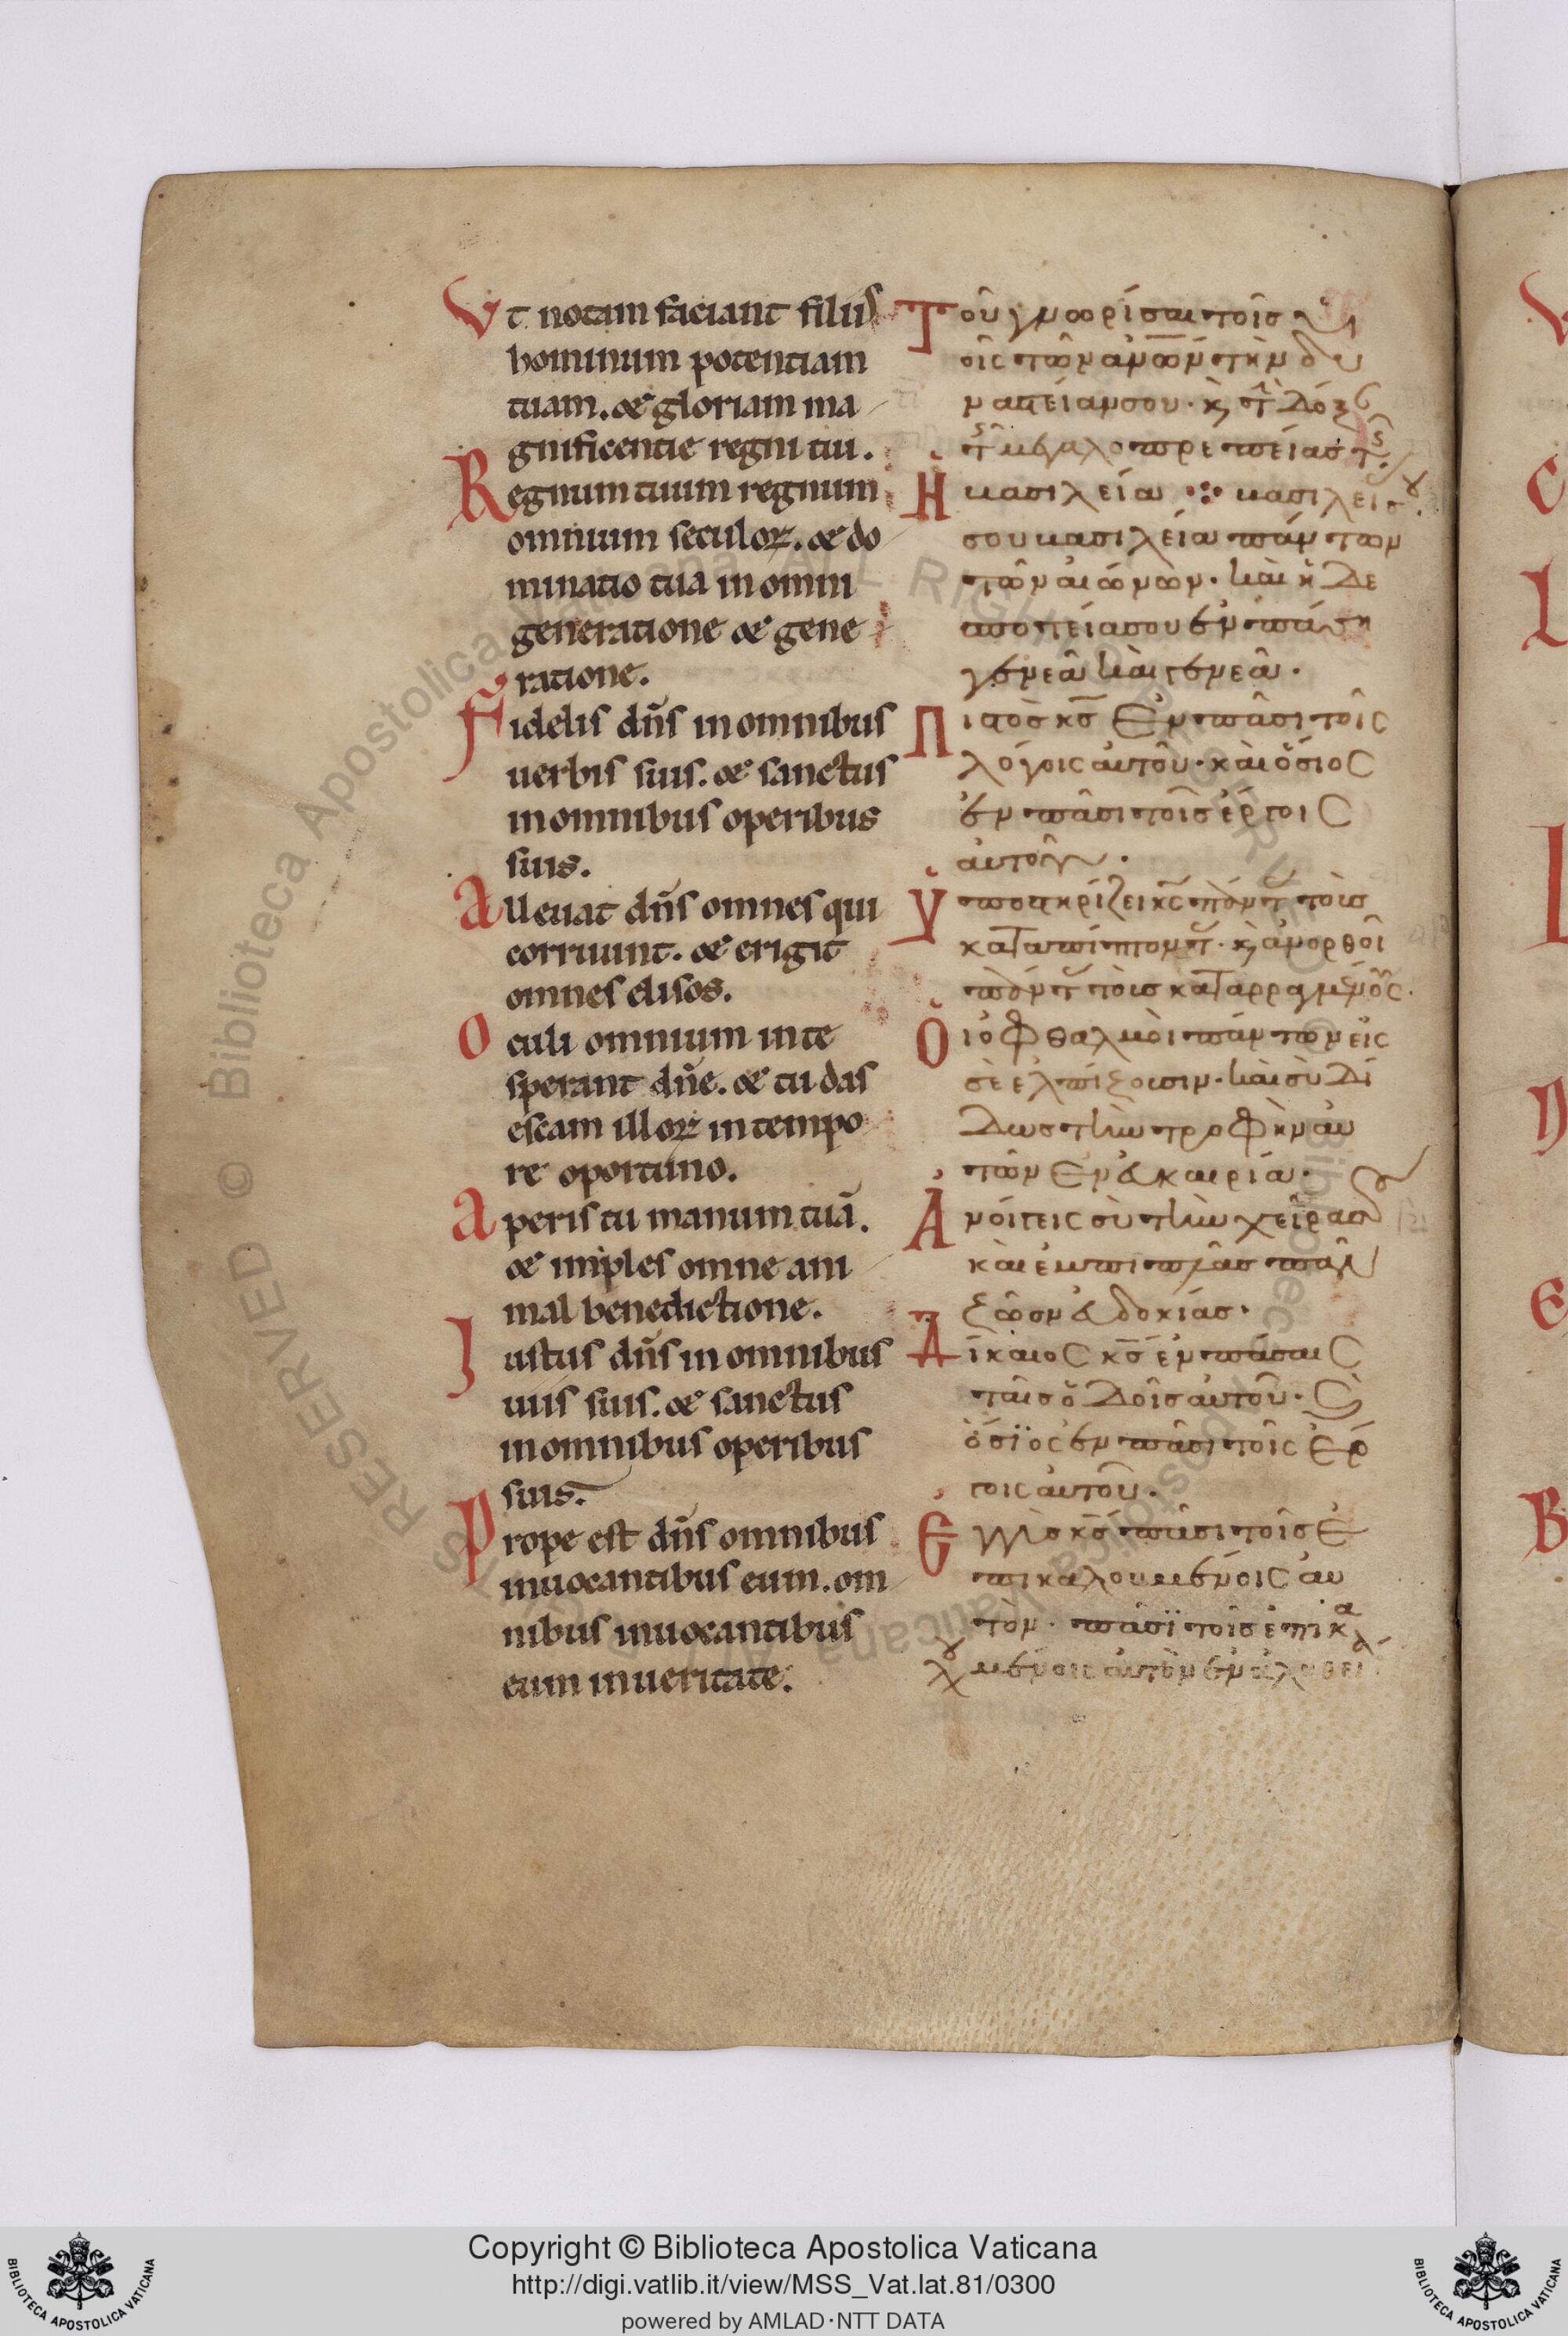 Vt notam faciant filiis
hominum potentiam
tuam. & gloriam ma
gnificentie regni tui.
Regnum tuum regnum
omnium seculoꝝ. & do
minatio tua in omni
generatione & gene
ratione.
Fidelis dn̄s in omnibus
uerbis suis. & sanctus
in omnibus operibus
suis.
Alleuat dn̄s omnes qui
corruunt. & erigit
omnes elisos.
Oculi omnium in te
sperant dn̄e. & tu das
escam illoꝝ in tempo
re oportuno.
Aperis tu manum tuā.
& imples omne ani
mal benedictione.
Iustus dn̄s in omnibus
uiis suis. & sanctus
in omnibus operibus
suis.
Prope est dn̄s omnibus
inuocantibus eum. om
nibus inuocantibus
eum in ueritate.
Τοῦ γνωρίσαι τοῖσ υἱ
οῖς τῶν ἀν̅ω̅ν̅ τὴν δυ
ναστείαν σου· ϗ τ̂ δόξ
τ̂ μεγαλοπρεπείασ τ̂
Ἡ βασιλεία βασιλεί
σου βασιλεία πάντων
τῶν αιώνων· καὶ ἡ δε
σποτεία σου ἐν πάση
γενεᾶ καὶ γενεᾶ·
Πιστὸσ κ̅σ̅ ἐν πᾶσι τοῖς
λόγοις αυτοῦ· καὶ ὅσιος
ἐν πᾶσι τοῖσ ἔργοις
ἀυτοῦ·
Ὑποστηρίζει κ̅ς̅ πάντ τοὺσ
καταπίπτοντ· ϗ ἀνορθοῖ
πάντ τοὺσ καταρραγμένους·
Ὁι ὀφθαλμὸι πάντων εἰς
σὲ ἐλπίζουσιν· καὶ σὺ δί
δωσ τὴν τροφὴν ἀυ
τῶν ἐν ἐυκαιρία·
Ἀνοίγεις σὺ τὴν χεῖρασ
καὶ ἐμπιπλᾶσ πᾶν
ζῶον ἐυδοκίασ·
Δίκαιος κ̅σ̅ ἐν πάσαις
ταῖσ ὁδοῖσ αυτοῦ· ϗ
ὅσϊος ἐν πᾶσι τοῖς ἔρ
γοις ἀυτοῦ·
Ἐγγὺσ κ̅σ̅ πᾶσι τοῖσ ἐ
πικαλουμένοις ἀυ
τὸν· πᾶσϊ τοῖσ ἐπικαλ
ουμένοις ἀυτὸν ἐν ἀληθεί
Copyright © Biblioteca Apostolica Vaticana
http://digi.vatlib.it/view/MSS_Vat.lat.81/0300
powered by AMLAD·NTT DATA
BIBLIOTECA APOSTOLICA VATICANA
BIBLIOTECA APOSTOLICA VATICANA